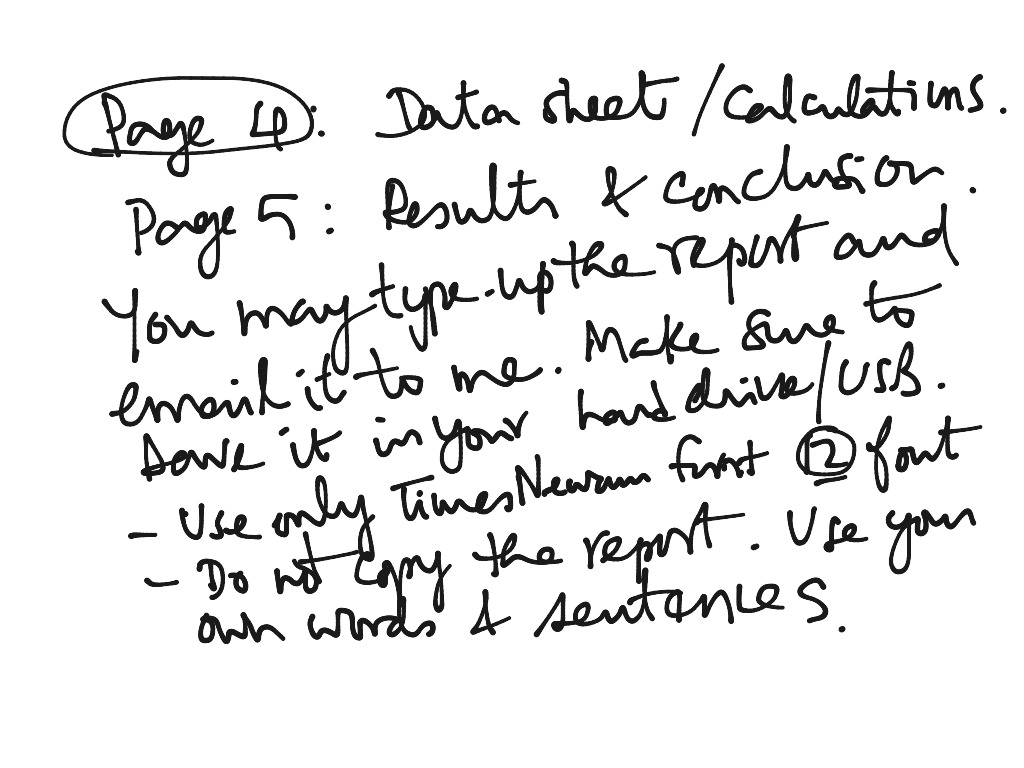 Page 4: Data sheet / Calculations.
Page 5: Results & Conclusion.
You may type-up the report and
email it to me. Make sure to
save it in your hard drive / USB.
- Use only Times New 12 font
- Do not copy the report. Use your
own words & sentances.